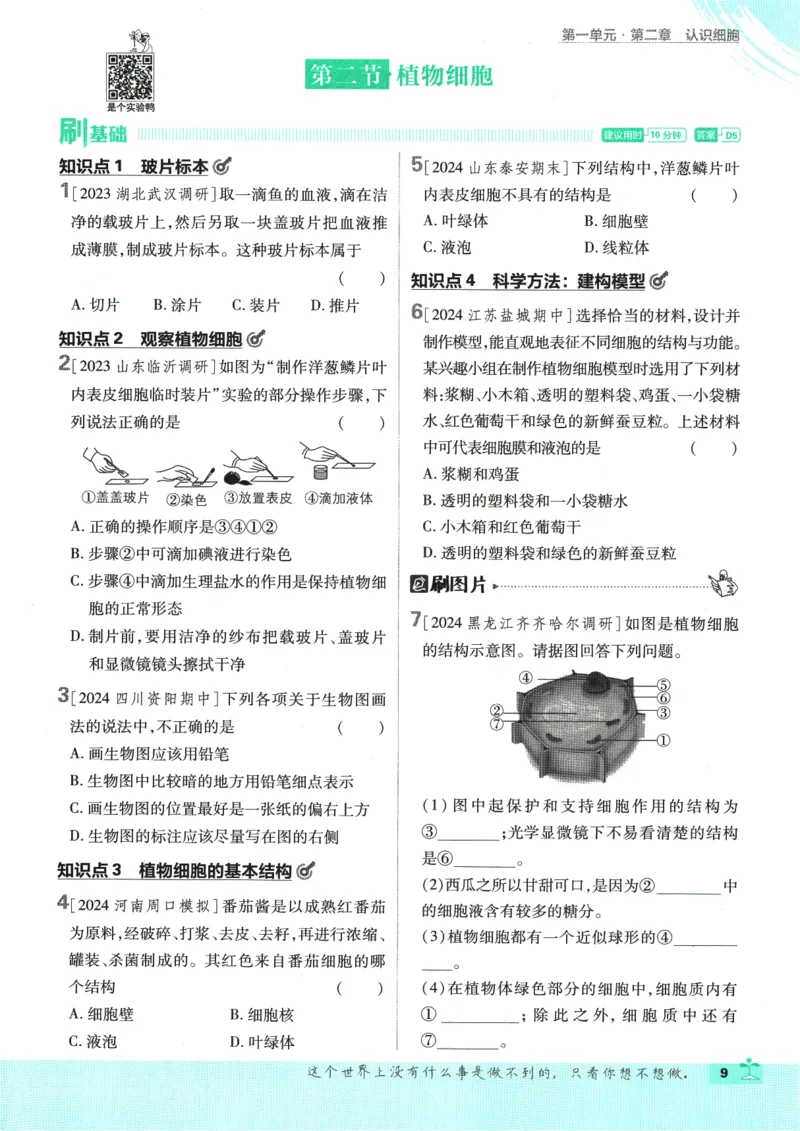 第一单元·第二章 认识细胞
是个实验鸭
第二节 植物细胞
刷基础
建议用时 10分钟 答案 D5
知识点1 玻片标本
1[2023湖北武汉调研]取一滴鱼的血液,滴在洁
净的载玻片上,然后另取一块盖玻片把血液推
成薄膜,制成玻片标本。这种玻片标本属于
( )
A. 切片 B. 涂片 C. 装片 D. 推片
知识点2 观察植物细胞
2[2023山东临沂调研]如图为“制作洋葱鳞片叶
内表皮细胞临时装片”实验的部分操作步骤,下
列说法正确的是 ( )
①盖盖玻片 ②染色 ③放置表皮 ④滴加液体
A. 正确的操作顺序是③④①②
B. 步骤②中可滴加碘液进行染色
C. 步骤④中滴加生理盐水的作用是保持植物细
胞的正常形态
D. 制片前,要用洁净的纱布把载玻片、盖玻片
和显微镜镜头擦拭干净
3[2024四川资阳期中]下列各项关于生物图画
法的说法中,不正确的是 ( )
A. 画生物图应该用铅笔
B. 生物图中比较暗的地方用铅笔细点表示
C. 画生物图的位置最好是一张纸的偏右上方
D. 生物图的标注应该尽量写在图的右侧
知识点3 植物细胞的基本结构
4[2024河南周口模拟]番茄酱是以成熟红番茄
为原料,经破碎、打浆、去皮、去籽,再进行浓缩、
罐装、杀菌制成的。其红色来自番茄细胞的哪
个结构 ( )
A. 细胞壁 B. 细胞核
C. 液泡 D. 叶绿体
5[2024山东泰安期末]下列结构中,洋葱鳞片叶
内表皮细胞不具有的结构是 ( )
A. 叶绿体 B. 细胞壁
C. 液泡 D. 线粒体
知识点4 科学方法:建构模型
6[2024江苏盐城期中]选择恰当的材料,设计并
制作模型,能直观地表征不同细胞的结构与功能。
某兴趣小组在制作植物细胞模型时选用了下列材
料:浆糊、小木箱、透明的塑料袋、鸡蛋、一小袋糖
水、红色葡萄干和绿色的新鲜蚕豆粒。上述材料
中可代表细胞膜和液泡的是 ( )
A. 浆糊和鸡蛋
B. 透明的塑料袋和一小袋糖水
C. 小木箱和红色葡萄干
D. 透明的塑料袋和绿色的新鲜蚕豆粒
刷图片
7[2024黑龙江齐齐哈尔调研]如图是植物细胞
的结构示意图。请据图回答下列问题。
④
⑤
⑥
②
③
⑦
①
(1)图中起保护和支持细胞作用的结构为
③______;光学显微镜下不易看清楚的结构
是⑥______。
(2)西瓜之所以甘甜可口,是因为②______中
的细胞液含有较多的糖分。
(3)植物细胞都有一个近似球形的④______
___。
(4)在植物体绿色部分的细胞中,细胞质内有
①______;除此之外,细胞质中还有
⑦______。
这个世界上没有什么事是做不到的,只看你想不想做.
9